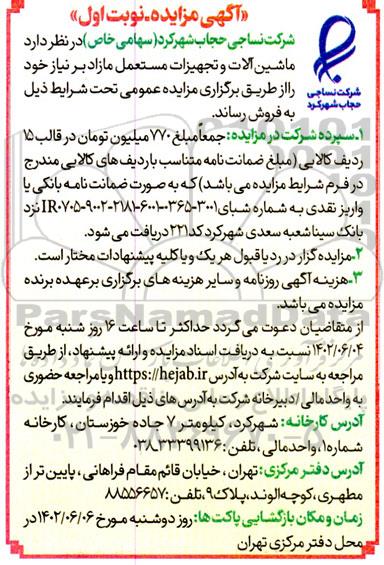 «آگهی مزایده-نوبت اول»
شرکت نساجی حجاب شهرکرد(سهامی خاص)در نظر دارد
ماشین آلات و تجهیزات مستعمل مازاد بر نیاز خود
را از طریق برگزاری مزایده عمومی تحت شرایط ذیل
به فروش رساند.
شرکت نساجی
حجاب شهرکرد
۱-سپرده شرکت در مزایده: جمعاً مبلغ ۷۷۰ میلیون تومان در قالب ۱۵
ردیف کالایی (مبلغ ضمانت نامه متناسب با ردیف های کالایی مندرج
در فرم شرایط مزایده می باشد) که به صورت ضمانت نامه بانکی یا
واریز نقدی به شماره شبای IR۰۷۰۵-۹۰۰۲-۲۱۸۱-۶۰۰۱-۰۳۶۵-۳۰۰۱ نزد
بانک سینا شعبه سعدی شهرکرد کد ۲۲۱ دریافت می شود.
۲-مزایده گزار در رد یا قبول هر یک و یا کلیه پیشنهادات مختار است.
۳-هزینه آگهی روزنامه و سایر هزینه های برگزاری بر عهده برنده
مزایده می باشد.
از متقاضیان دعوت می گردد حداکثر تا ساعت ۱۶ روز شنبه مورخ
۱۴۰۲/۰۶/۰۴ نسبت به دریافت اسناد مزایده و ارائه پیشنهاد، از طریق
مراجعه به سایت شرکت به آدرس https://hejab.ir و یا مراجعه حضوری
به واحد مالی/دبیرخانه شرکت به آدرس های ذیل اقدام فرمایند.
آدرس کارخانه: شهرکرد، کیلومتر ۷ جاده خوزستان، کارخانه
شماره۱، واحد مالی، تلفن: ۰۳۸۳۳۳۹۹۱۳۶
آدرس دفتر مرکزی: تهران، خیابان قائم مقام فراهانی، پایین تر از
مطهری، کوچه الوند، پلاک ۹، تلفن: ۸۸۵۵۶۶۵۷
زمان و مکان بازگشایی پاکت ها: روز دوشنبه مورخ ۱۴۰۲/۰۶/۰۶ در
محل دفتر مرکزی تهران
ParsNamadData
۰۲۱-۸۸۳۴۹۶۷۰-۵